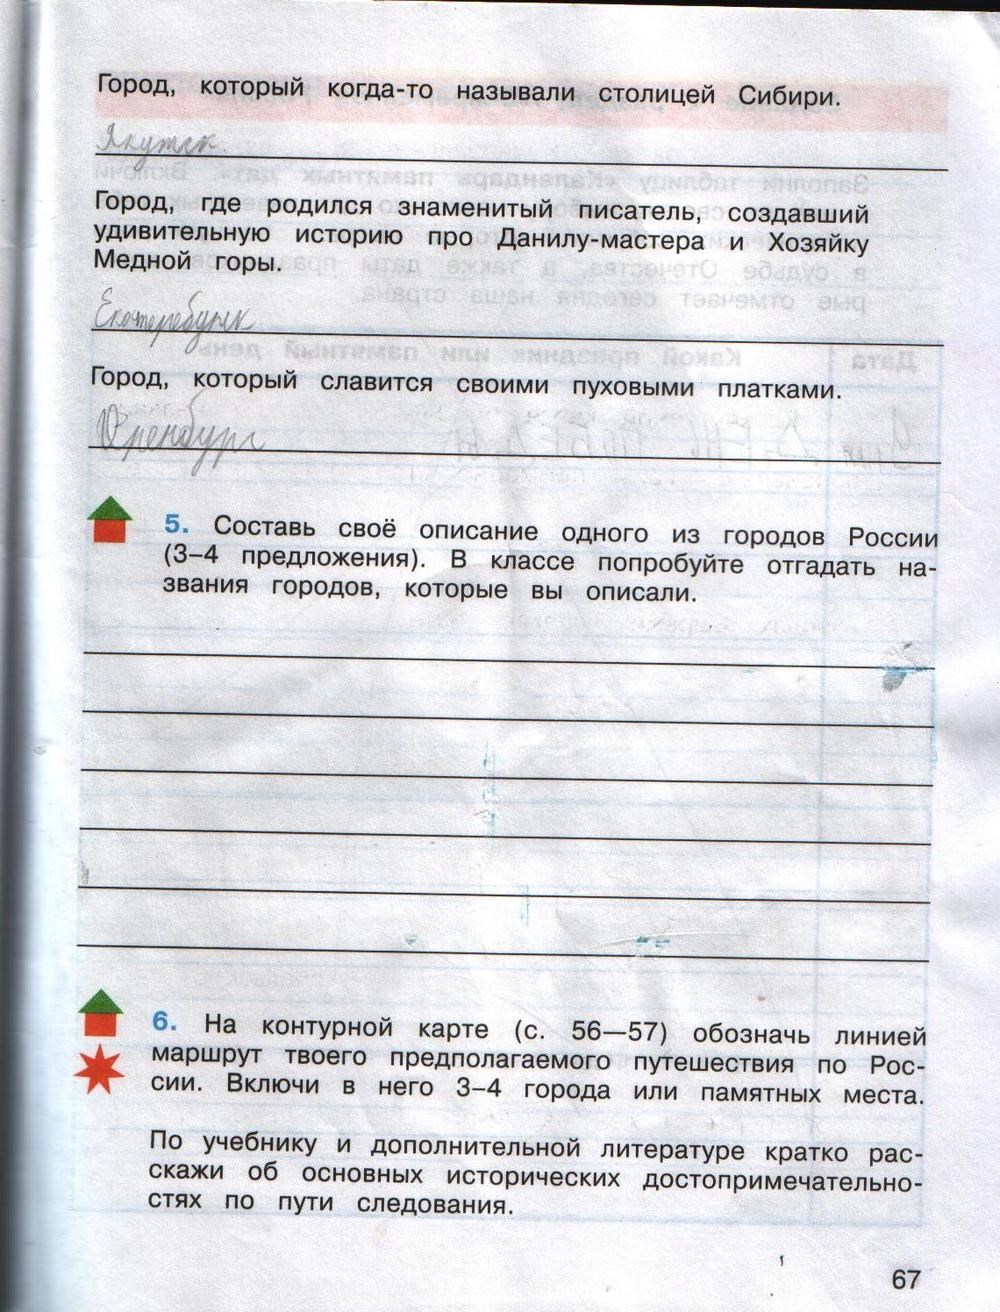 Город, который когда-то называли столицей Сибири.
Якутск
Город, где родился знаменитый писатель, создавший
удивительную историю про Данилу-мастера и Хозяйку
Медной горы.
Екатеребунк
Город, который славится своими пуховыми платками.
Оренбург
5. Составь своё описание одного из городов России
(3–4 предложения). В классе попробуйте отгадать на-
звания городов, которые вы описали.
6. На контурной карте (с. 56—57) обозначь линией
маршрут твоего предполагаемого путешествия по Рос-
сии. Включи в него 3–4 города или памятных места.
По учебнику и дополнительной литературе кратко рас-
скажи об основных исторических достопримечательно-
стях по пути следования.
67